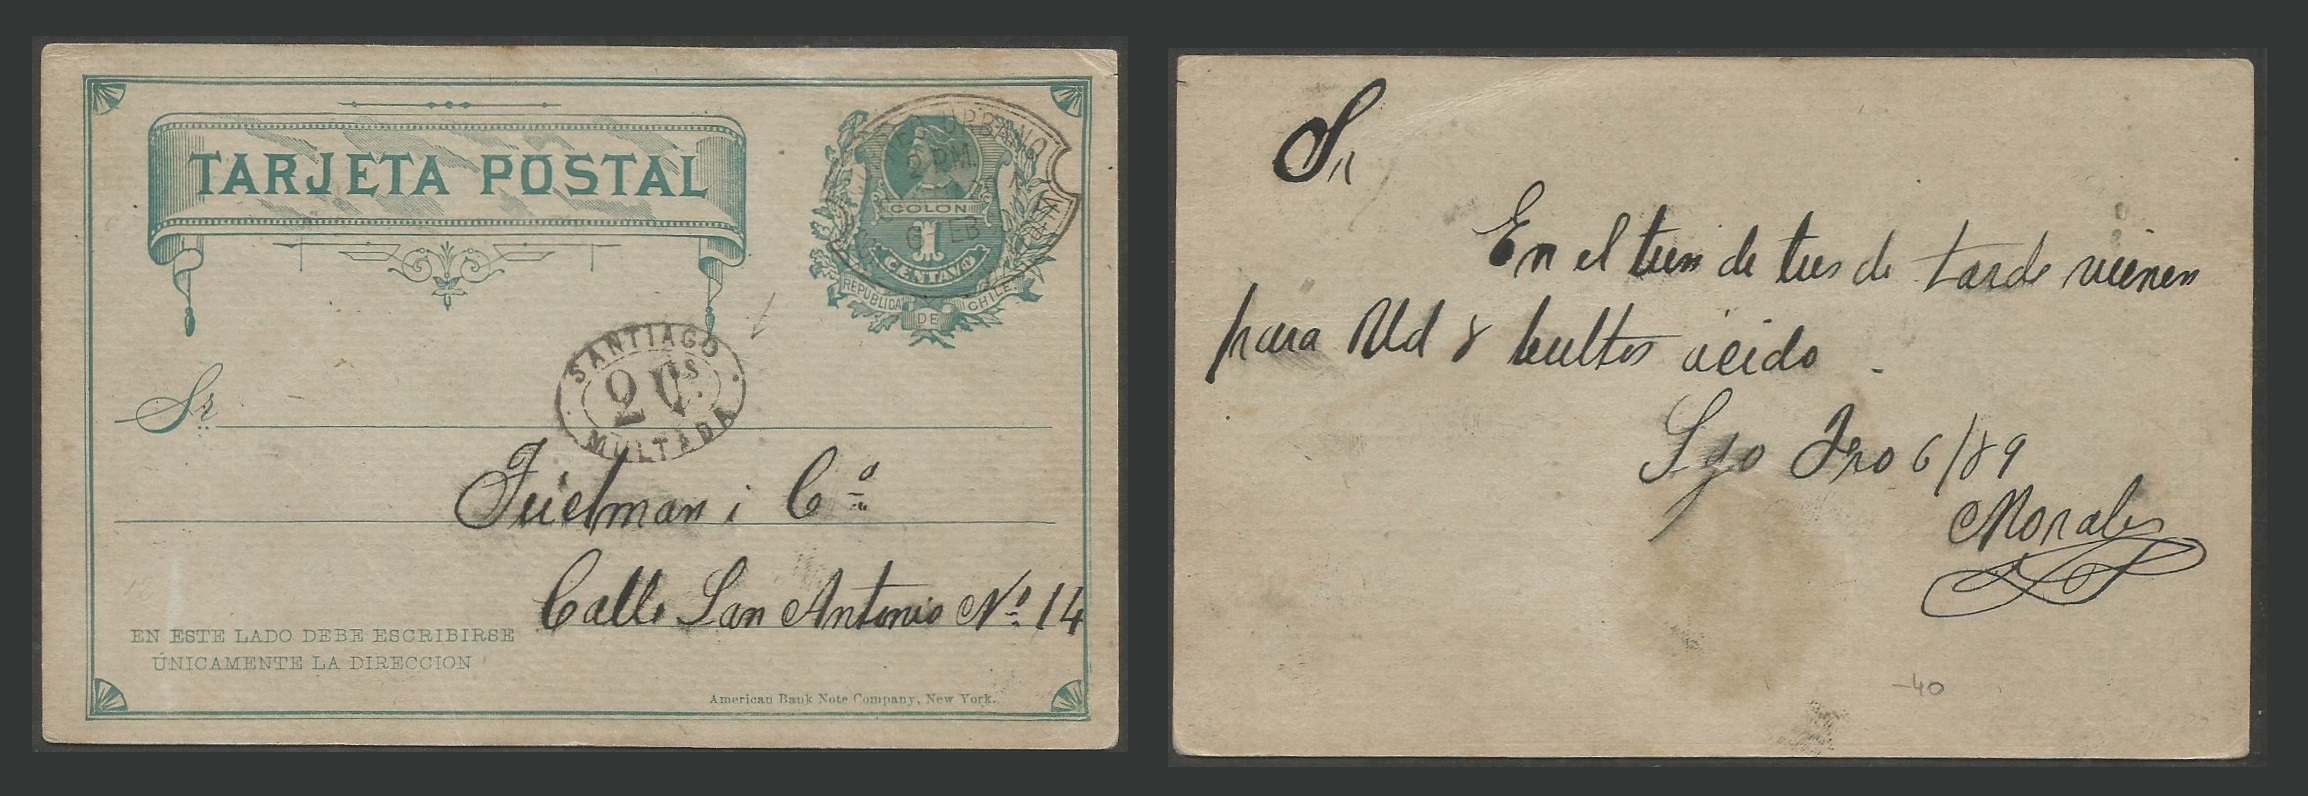 TARJETA POSTAL
URBANO
2 PM.
6 FEB
COLON
1
CENTAVO
REPUBLICA DE CHILE
SANTIAGO
2 Cs.
MULTADA
Sr.
i Ca
Calle San Antonio No. 14
EN ESTE LADO DEBE ESCRIBIRSE
ÚNICAMENTE LA DIRECCION
American Bank Note Company, New York.
Sr
En el tren de tres de tarde vienen
para Ud 8 bultos acido.
Sgo Fro 6/89
Morales
-40